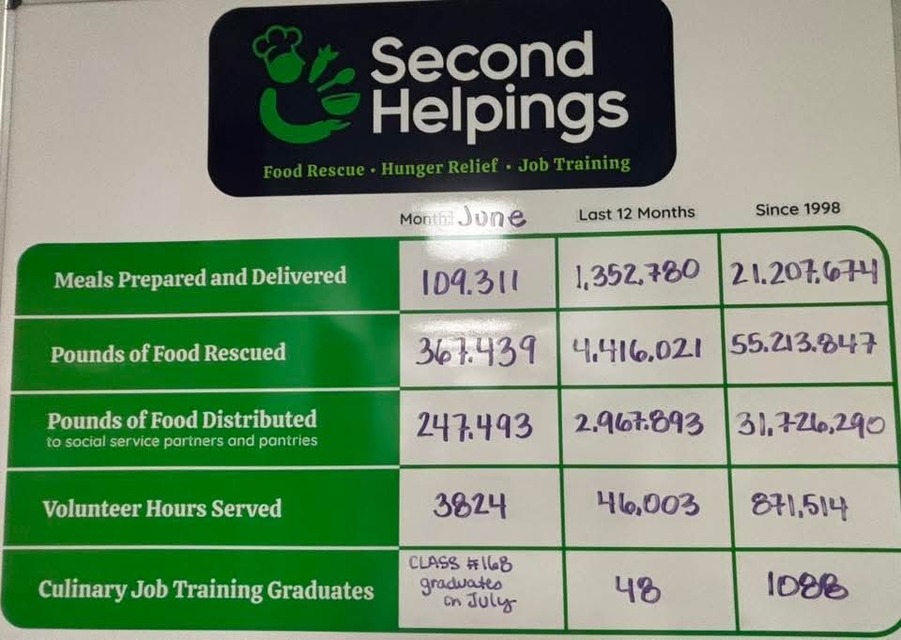 Second
Helpings
Food Rescue • Hunger Relief • Job Training
Month: June Last 12 Months Since 1998
Meals Prepared and Delivered 109.311 1,352,780 21.207,674
Pounds of Food Rescued 367.439 4,416,021 55.213.847
Pounds of Food Distributed 247.493 2.967.893 31,726,290
to social service partners and pantries
Volunteer Hours Served 3824 46,003 871,514
Culinary Job Training Graduates CLASS #168 48 1088
graduates
in July